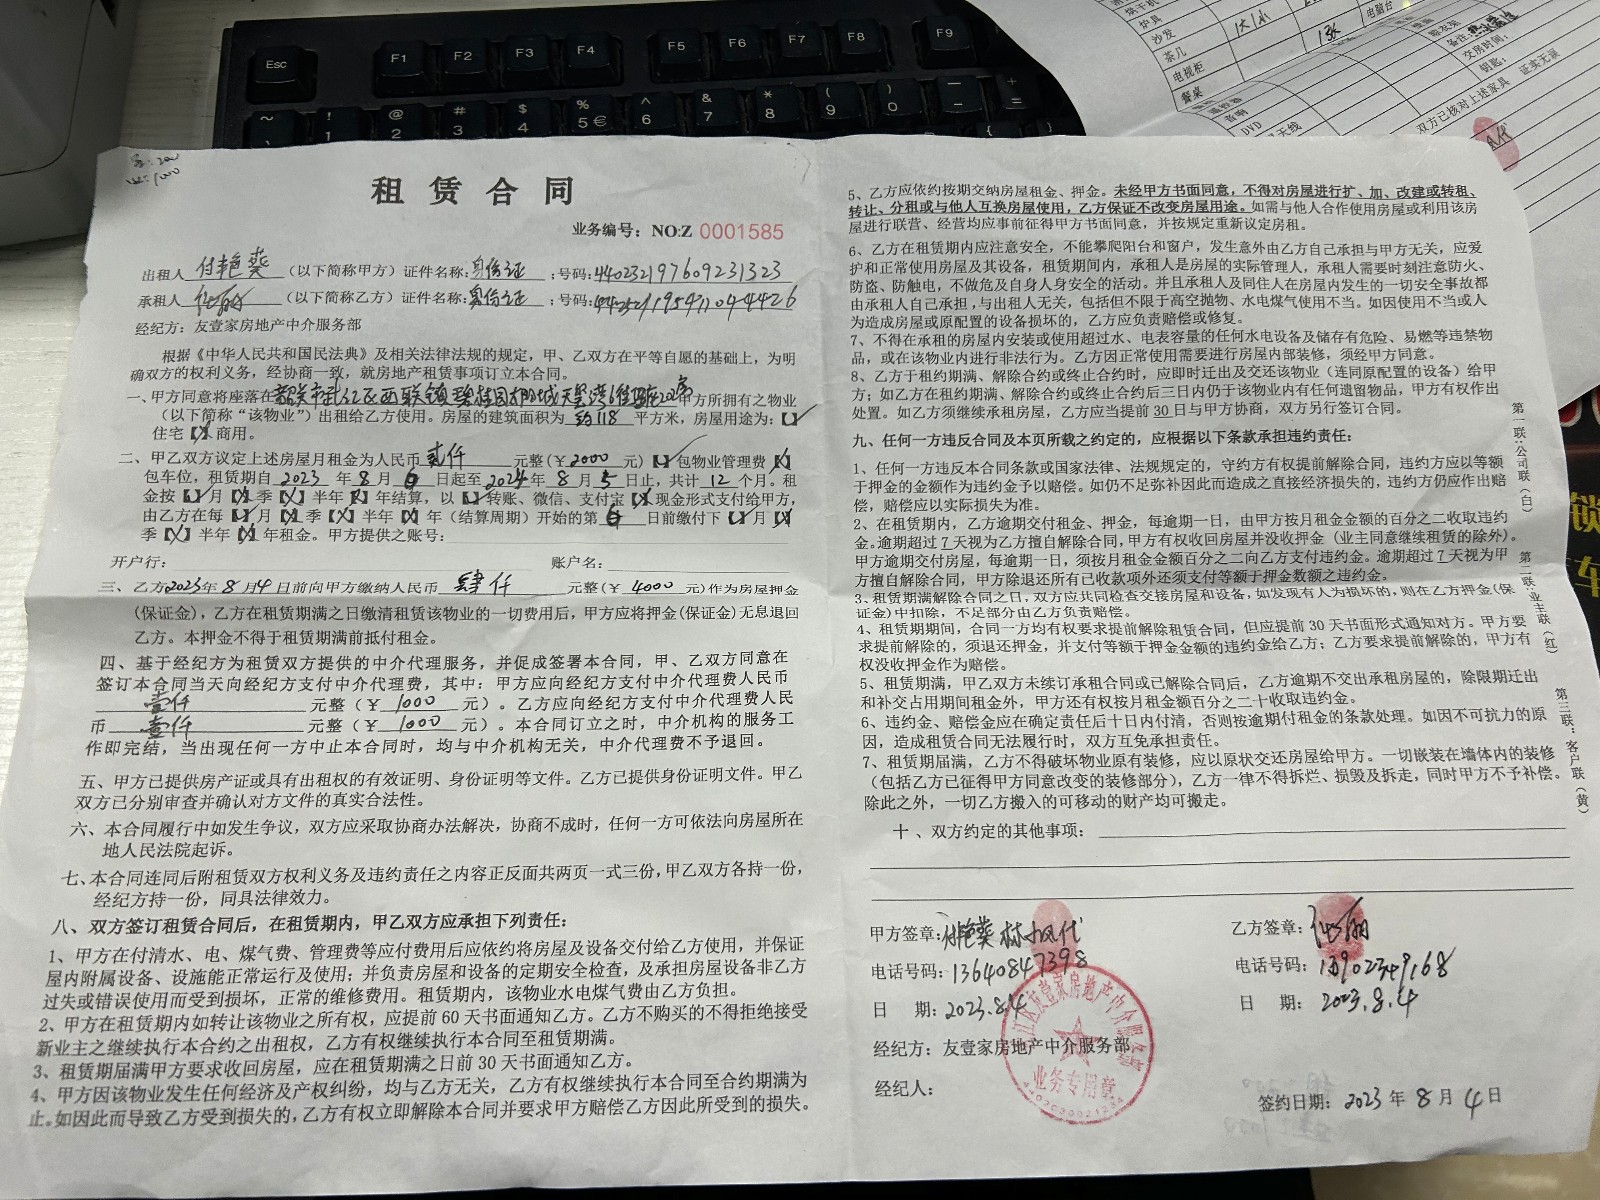 Esc F1 F2 F3 F4 F5 F6 F7 F8 F9
烘干机
炉具
沙发
茶几
电视柜
餐桌
音响
DVD
电脑台
1张
交房时间:
钥匙:
双方已核对上述家具
证实无误
租赁合同
业务编号：NO:Z 0001585
出租人 付艳葵 （以下简称甲方）证件名称:身份证 ;号码:440232197609231323
承租人 （以下简称乙方）证件名称:身份证 ;号码:
经纪方：友壹家房地产中介服务部
根据《中华人民共和国民法典》及相关法律法规的规定，甲、乙双方在平等自愿的基础上，为明
确双方的权利义务，经协商一致，就房地产租赁事项订立本合同。
一、甲方同意将座落在韶关市武江区西联镇碧桂园 甲方所拥有之物业
（以下简称“该物业”）出租给乙方使用。房屋的建筑面积为 约118 平方米，房屋用途为：【✓】
住宅【X】商用。
二、甲乙双方议定上述房屋月租金为人民币 贰仟 元整(￥2000 元)【✓】包物业管理费【X】
包车位，租赁期自 2023 年 8 月 6 日起至 2024 年 8 月 5 日止，共计 12 个月。租
金按【✓】月【X】季【X】半年【X】年结算，以【✓】转账、微信、支付宝【X】现金形式支付给甲方，
由乙方在每【✓】月【X】季【X】半年【X】年（结算周期）开始的第 6 日前缴付下【✓】月【X】
季【X】半年【X】年租金。甲方提供之账号：
开户行： 账户名：
三、乙方2023年8月4日前向甲方缴纳人民币 肆仟 元整(￥ 4000 元)作为房屋押金
(保证金)，乙方在租赁期满之日缴清租赁该物业的一切费用后，甲方应将押金(保证金)无息退回
乙方。本押金不得于租赁期满前抵付租金。
四、基于经纪方为租赁双方提供的中介代理服务，并促成签署本合同，甲、乙双方同意在
签订本合同当天向经纪方支付中介代理费，其中：甲方应向经纪方支付中介代理费人民币
壹仟 元整（￥ 1000 元）。乙方应向经纪方支付中介代理费人民
币 壹仟 元整（￥ 1000 元）。本合同订立之时，中介机构的服务工
作即完结，当出现任何一方中止本合同时，均与中介机构无关，中介代理费不予退回。
五、甲方已提供房产证或具有出租权的有效证明、身份证明等文件。乙方已提供身份证明文件。甲乙
双方已分别审查并确认对方文件的真实合法性。
六、本合同履行中如发生争议，双方应采取协商办法解决，协商不成时，任何一方可依法向房屋所在
地人民法院起诉。
七、本合同连同后附租赁双方权利义务及违约责任之内容正反面共两页一式三份，甲乙双方各持一份，
经纪方持一份，同具法律效力。
八、双方签订租赁合同后，在租赁期内，甲乙双方应承担下列责任：
1、甲方在付清水、电、煤气费、管理费等应付费用后应依约将房屋及设备交付给乙方使用，并保证
屋内附属设备、设施能正常运行及使用；并负责房屋和设备的定期安全检查，及承担房屋设备非乙方
过失或错误使用而受到损坏，正常的维修费用。租赁期内，该物业水电煤气费由乙方负担。
2、甲方在租赁期内如转让该物业之所有权，应提前 60 天书面通知乙方。乙方不购买的不得拒绝接受
新业主之继续执行本合约之出租权，乙方有权继续执行本合同至租赁期满。
3、租赁期届满甲方要求收回房屋，应在租赁期满之日前 30 天书面通知乙方。
4、甲方因该物业发生任何经济及产权纠纷，均与乙方无关，乙方有权继续执行本合同至合约期满为
止。如因此而导致乙方受到损失的，乙方有权立即解除本合同并要求甲方赔偿乙方因此所受到的损失。
5、乙方应依约按期交纳房屋租金、押金。未经甲方书面同意，不得对房屋进行扩、加、改建或转租、
转让、分租或与他人互换房屋使用，乙方保证不改变房屋用途。如需与他人合作使用房屋或利用该房
屋进行联营、经营均应事前征得甲方书面同意，并按规定重新议定房租。
6、乙方在租赁期内应注意安全，不能攀爬阳台和窗户，发生意外由乙方自己承担与甲方无关，应爱
护和正常使用房屋及其设备，租赁期间内，承租人是房屋的实际管理人，承租人需要时刻注意防火、
防盗、防触电，不做危及自身人身安全的活动。并且承租人及同住人在房屋内发生的一切安全事故都
由承租人自己承担，与出租人无关，包括但不限于高空抛物、水电煤气使用不当。如因使用不当或人
为造成房屋或原配置的设备损坏的，乙方应负责赔偿或修复。
7、不得在承租的房屋内安装或使用超过水、电表容量的任何水电设备及储存有危险、易燃等违禁物
品，或在该物业内进行非法行为。乙方因正常使用需要进行房屋内部装修，须经甲方同意。
8、乙方于租约期满、解除合约或终止合约时，应即时迁出及交还该物业（连同原配置的设备）给甲
方；如乙方在租约期满、解除合约或终止合约后三日内仍于该物业内有任何遗留物品，甲方有权作出
处置。如乙方须继续承租房屋，乙方应当提前 30 日与甲方协商，双方另行签订合同。
九、任何一方违反合同及本页所载之约定的，应根据以下条款承担违约责任：
1、任何一方违反本合同条款或国家法律、法规规定的，守约方有权提前解除合同，违约方应以等额
于押金的金额作为违约金予以赔偿。如仍不足弥补因此而造成之直接经济损失的，违约方仍应作出赔
偿，赔偿应以实际损失为准。
2、在租赁期内，乙方逾期交付租金、押金，每逾期一日，由甲方按月租金金额的百分之二收取违约
金。逾期超过 7 天视为乙方擅自解除合同，甲方有权收回房屋并没收押金（业主同意继续租赁的除外）。
甲方逾期交付房屋，每逾期一日，须按月租金金额百分之二向乙方支付违约金。逾期超过 7 天视为甲
方擅自解除合同，甲方除退还所有已收款项外还须支付等额于押金数额之违约金。
3、租赁期满解除合同之日，双方应共同检查交接房屋和设备，如发现有人为损坏的，则在乙方押金(保
证金)中扣除，不足部分由乙方负责赔偿。
4、租赁期期间，合同一方均有权要求提前解除租赁合同，但应提前 30 天书面形式通知对方。甲方要
求提前解除的，须退还押金，并支付等额于押金金额的违约金给乙方；乙方要求提前解除的，甲方有
权没收押金作为赔偿。
5、租赁期满，甲乙双方未续订承租合同或已解除合同后，乙方逾期不交出承租房屋的，除限期迁出
和补交占用期间租金外，甲方还有权按月租金额百分之二十收取违约金。
6、违约金、赔偿金应在确定责任后十日内付清，否则按逾期付租金的条款处理。如因不可抗力的原
因，造成租赁合同无法履行时，双方互免承担责任。
7、租赁期届满，乙方不得破坏物业原有装修，应以原状交还房屋给甲方。一切嵌装在墙体内的装修
（包括乙方已征得甲方同意改变的装修部分），乙方一律不得拆烂、损毁及拆走，同时甲方不予补偿。
除此之外，一切乙方搬入的可移动的财产均可搬走。
十、双方约定的其他事项：
第一联：公司联（白）
第二联：业主联（红）
第三联：客户联（黄）
甲方签章：付艳葵 代
电话号码：13640847398
日 期：2023.8.4
经纪方：友壹家房地产中介服务部
经纪人：
业务专用章
乙方签章：
电话号码：13902349168
日 期：2023.8.4
签约日期：2023 年 8 月 4 日